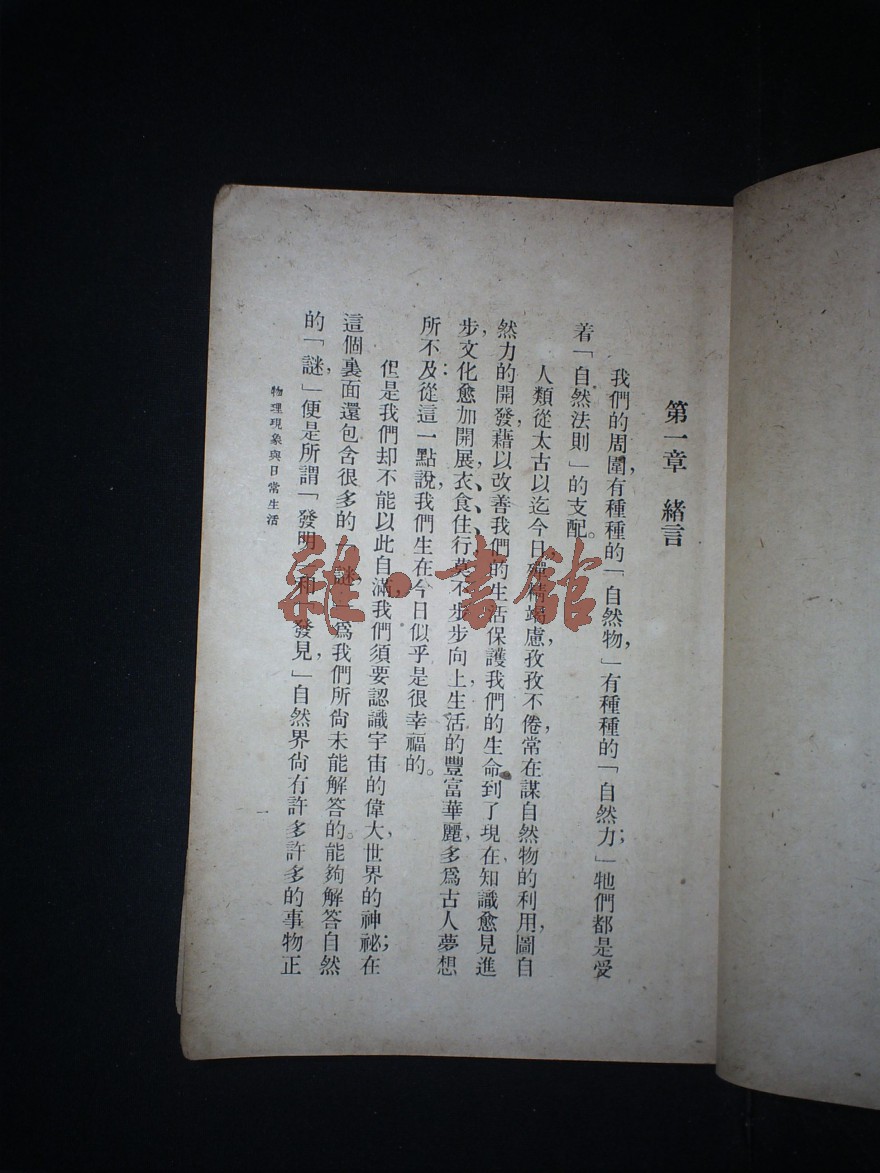 第一章 緒言
我們的周圍，有種種的「自然物，」有種種的「自然力；」牠們都是受
着「自然法則」的支配。
人類從太古以迄今日，殫精竭慮，孜孜不倦，常在謀自然物的利用，圖自
然力的開發，藉以改善我們的生活，保護我們的生命。到了現在，知識愈見進
步，文化愈加開展，衣、食、住、行，莫不步步向上，生活的豐富華麗，多爲古人夢想
所不及：從這一點說，我們生在今日，似乎是很幸福的。
但是我們却不能以此自滿，我們須要認識宇宙的偉大，世界的神祕；在
這個裏面，還包含很多的「謎，」爲我們所尙未能解答的。能夠解答自然
的「謎，」便是所謂「發明」和「發見。」自然界尙有許多許多的事物，正
物理現象與日常生活
一
雜·書館